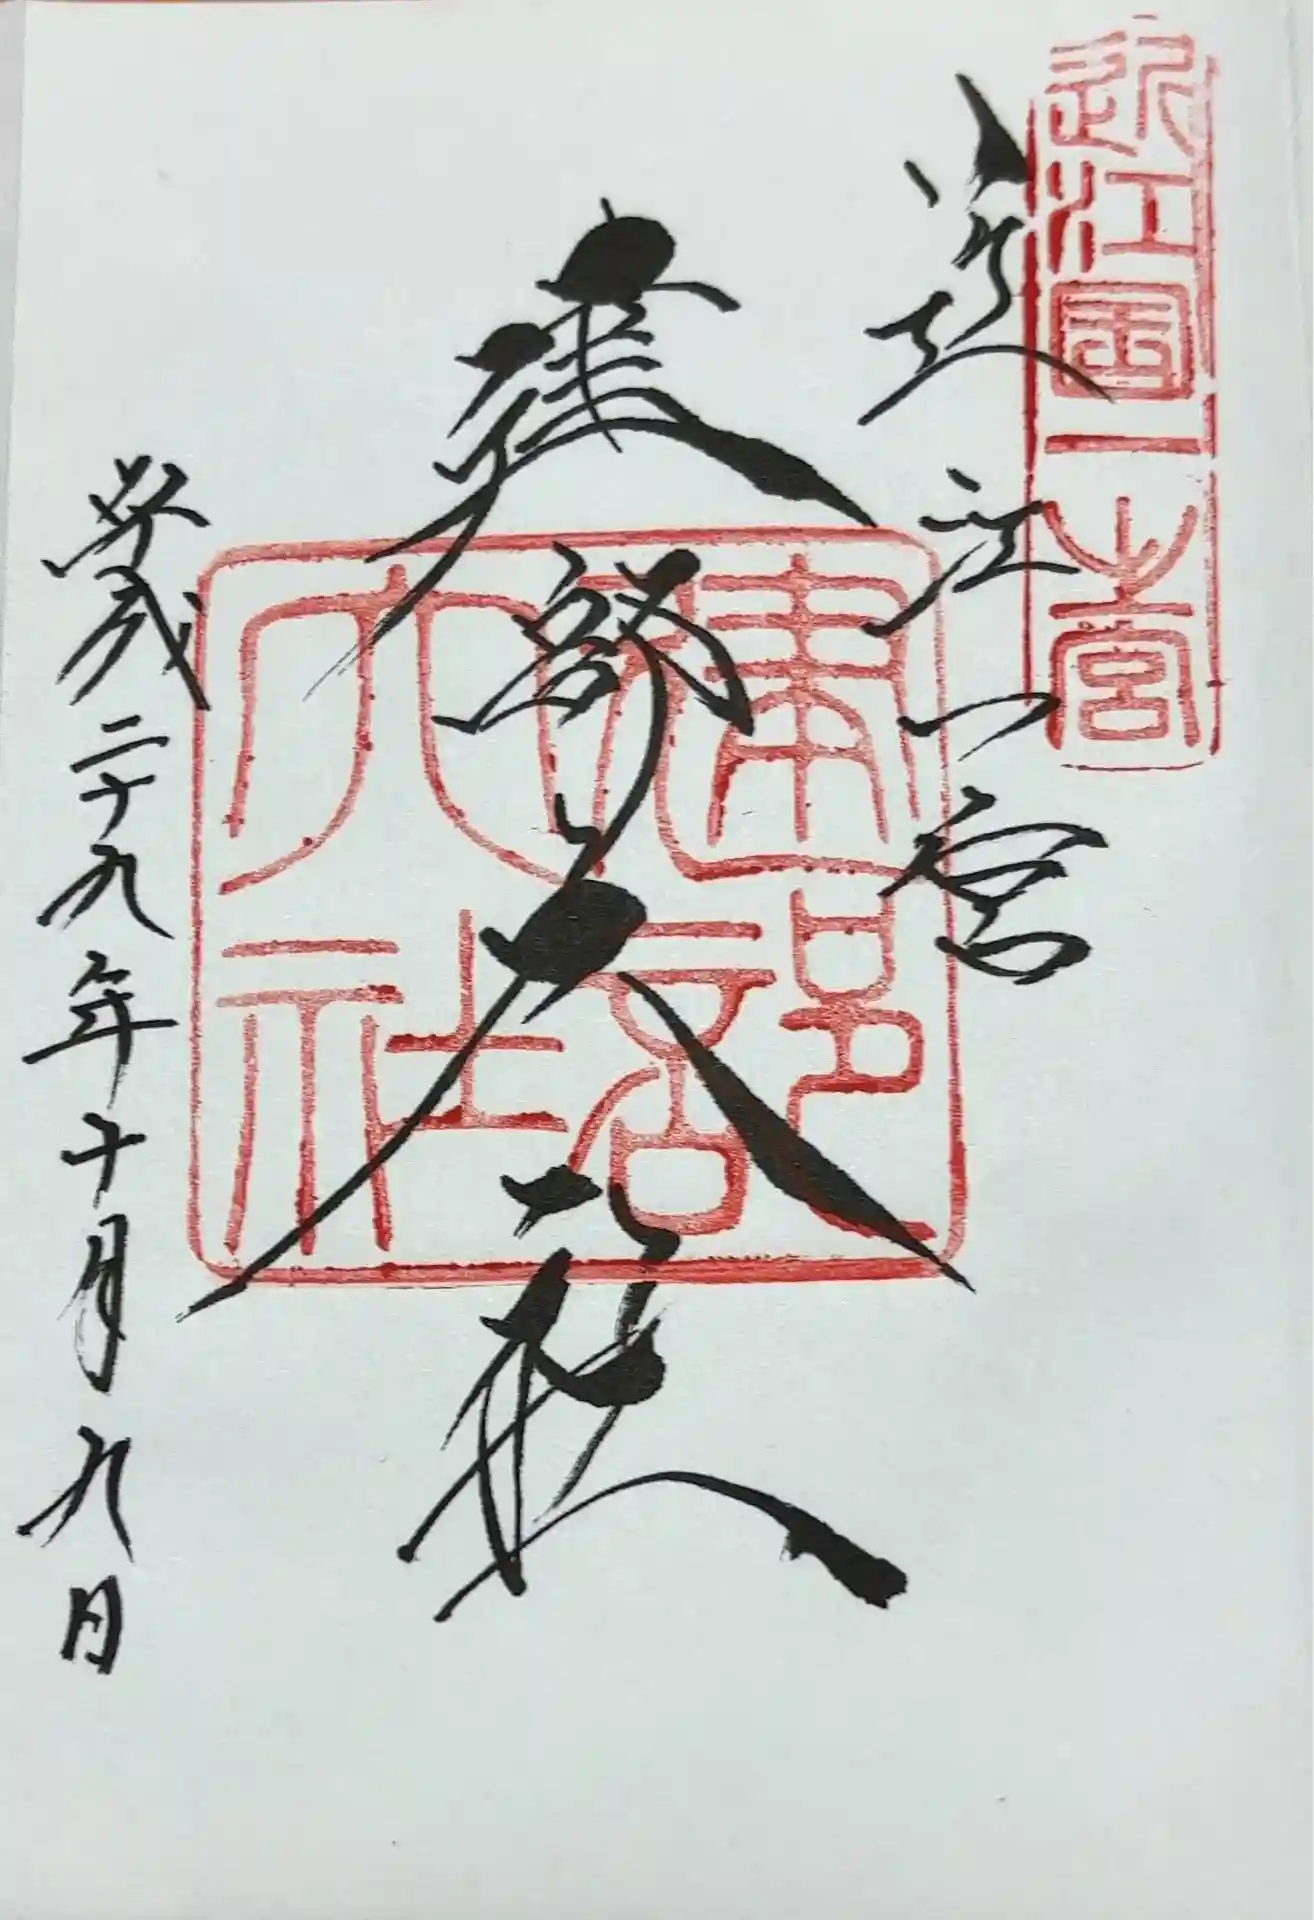 近江国一之宮
近江一宮
建部大社
建部大社
平成二十九年十月九日